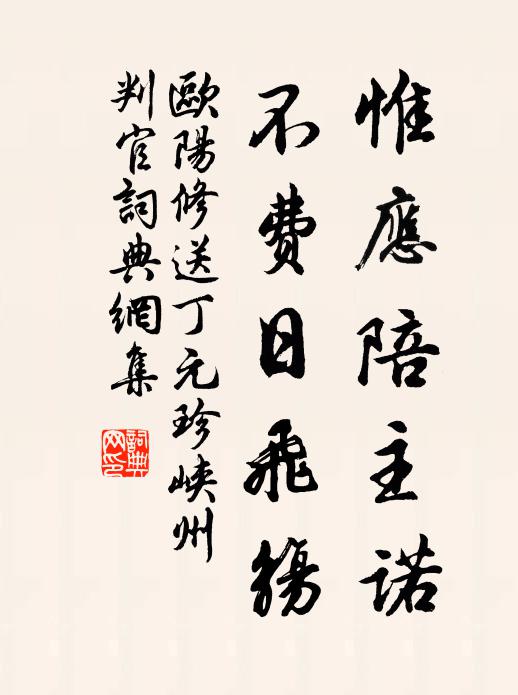 惟應陪主諾
不費日飛觴
歐陽修送丁元珍峽州
判官詞典網集
詞典
网印